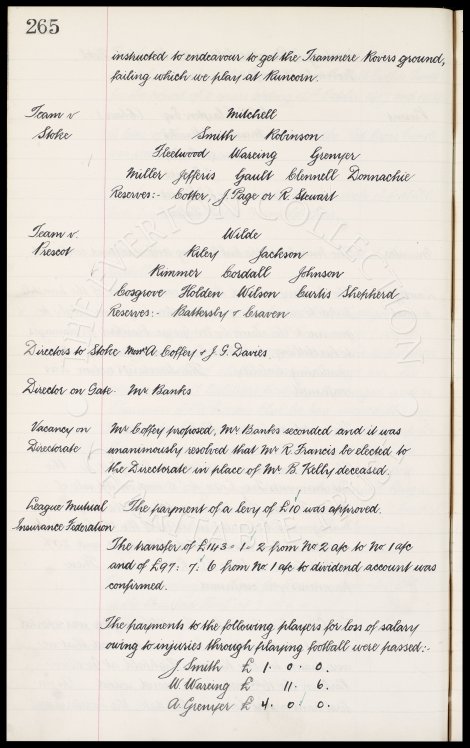 265
instructed to endeavour to get the Tranmere Rovers ground,
failing which we play at Runcorn.
Team v Mitchell
Stoke Smith Robinson
Fleetwood Wareing Grenyer
Miller Jefferis Gault Clennell Donnachie
Reserves:- Cotter, J. Page or R. Stewart
Team v. Wilde
Prescot Riley Jackson
Rimmer Cordall Johnson
Cosgrove Holden Wilson Curtis Shepherd
Reserves: Battersby & Craven
Directors to Stoke Messrs A. Coffey & J. G. Davies
Director on Gate. Mr Banks
Vacancy on Mr Coffey proposed, Mr Banks seconded and it was
Directorate unanimously resolved that Mr R. Francis be elected to
the Directorate in place of Mr B. Kelly deceased.
League Mutual The payment of a levy of £10 was approved.
Insurance Federation
The transfer of £143 = 1 = 2 from No 2 a/c to No 1 a/c
and of £97 : 7 : 6 from No 1 a/c to dividend account was
confirmed.
The payments to the following players for loss of salary
owing to injuries through playing football were passed:-
J. Smith £ 1. 0. 0.
W. Wareing £ 11. 6.
A. Grenyer £ 4. 0. 0.
THE EVERTON COLLECTION